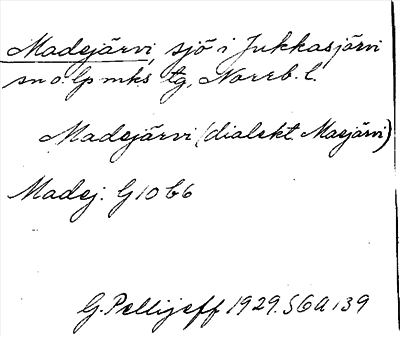 Madejärvi, sjö i Jukkasjärvi
sn o lpmks tg, Norrb. l.
Madejärvi (dialekt. Maejärvi)
Madej. G 10 b 6
G. Pellijeff 1929. S 6 A 139